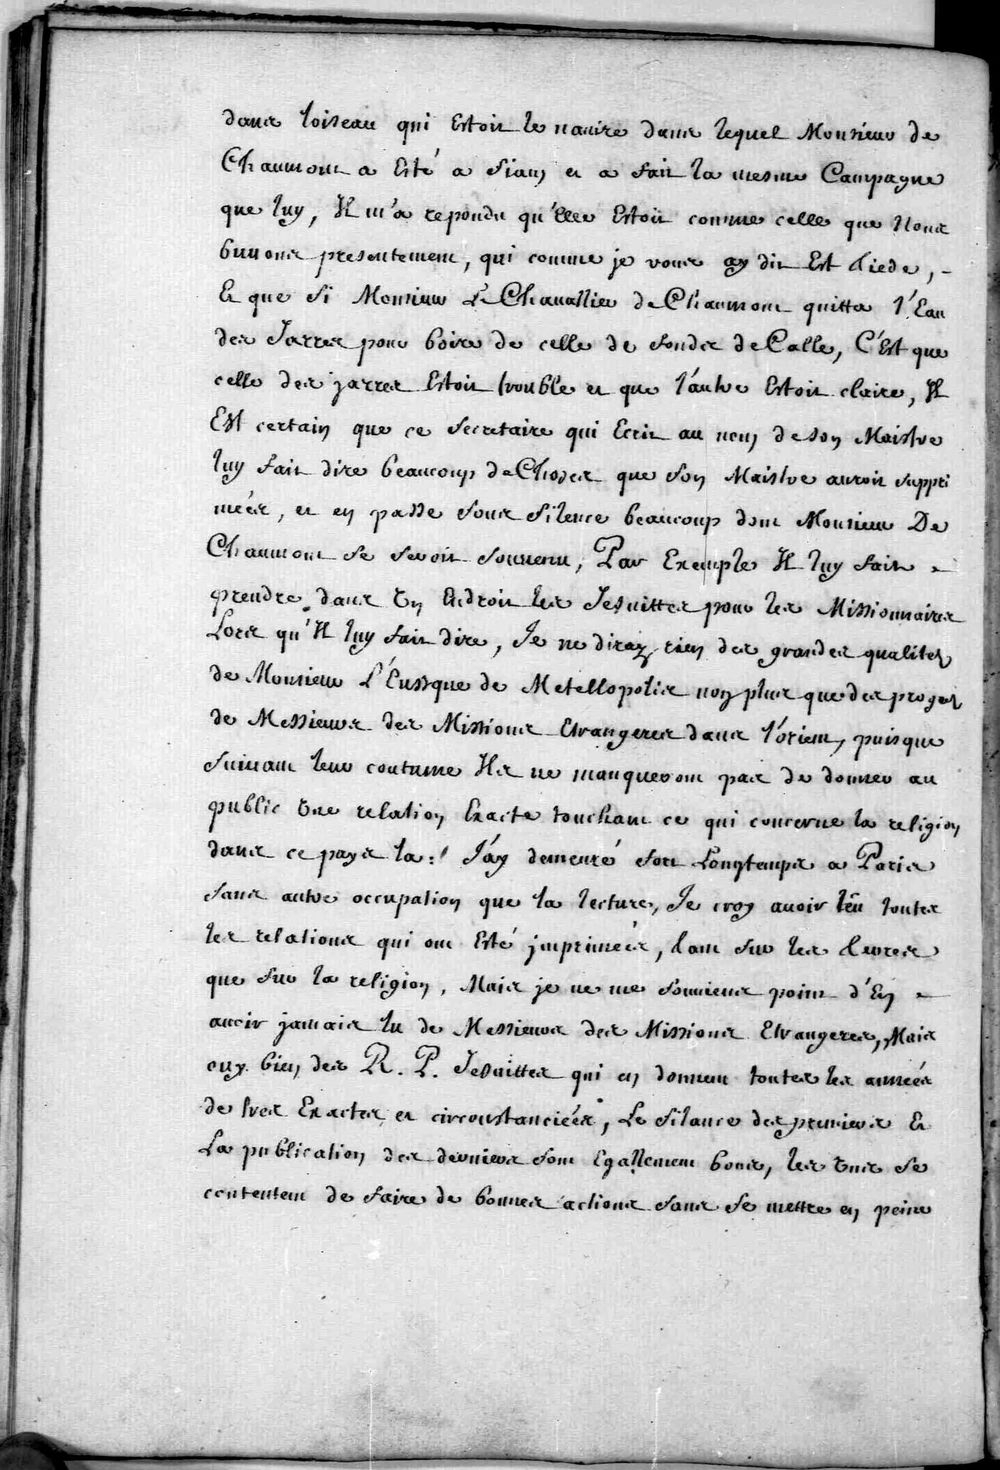 dans loiseau qui Estoit le nauire dans lequel Monsieur de
Chaumont a Esté a Siam et a fait la mesme Campagne
que luy, Il m'a repondu qu'Elle Estoit comme celle que Nous
buuons presentement, qui comme je vous ay dit Est tiede, -
Et que Si Monsieur Le Cheuallier de Chaumont quitta l'Eau
des Jarres pour boire de celle de fonds de Calle, C'Est que
celle des jarres Estoit trouble et que l'autre Estoit claire, Il
Est certain que ce Secretaire qui Ecrit au nom de son Maistre
luy fait dire beaucoup de Choses que son Maistre auroit suppri
mées, et en passe sous Silence beaucoup dont Monsieur De
Chaumont se seroit souuenu, Par Exemple Il luy fait -
prendre dans Un Endroit les Jesuittes pour les Missionnaires
Lors qu'Il luy fait dire, Je ne diray rien des grandes qualitez
de Monsieur L'Euesque de Metellopolis non plus que des progez
de Messieurs des Missions Etrangeres dans l'orient, puisque
suiuant leur coutume Ils ne manqueront pas de donner au
public Une relation Exacte touchant ce qui concerne la religion
dans ce pays la: J'ay demeuré fort Longtemps a Paris
sans autre occupation que la lecture, Je croy auoir lëu toutes
les relations qui ont Esté jmprimées, tant sur les terres
que sur la religion, Mais je ne me souuiens point d'En -
auoir jamais lu de Messieurs des Missions Etrangeres, Mais
ouy bien des R. P. Jesuittes qui en donnent toutes les années
de tres Exactes et circonstanciées, Le Silance des premiers Et
La publication des derniers sont Egallement bons, les Uns se
contentent de faire de bonnes actions sans se mettre en peine